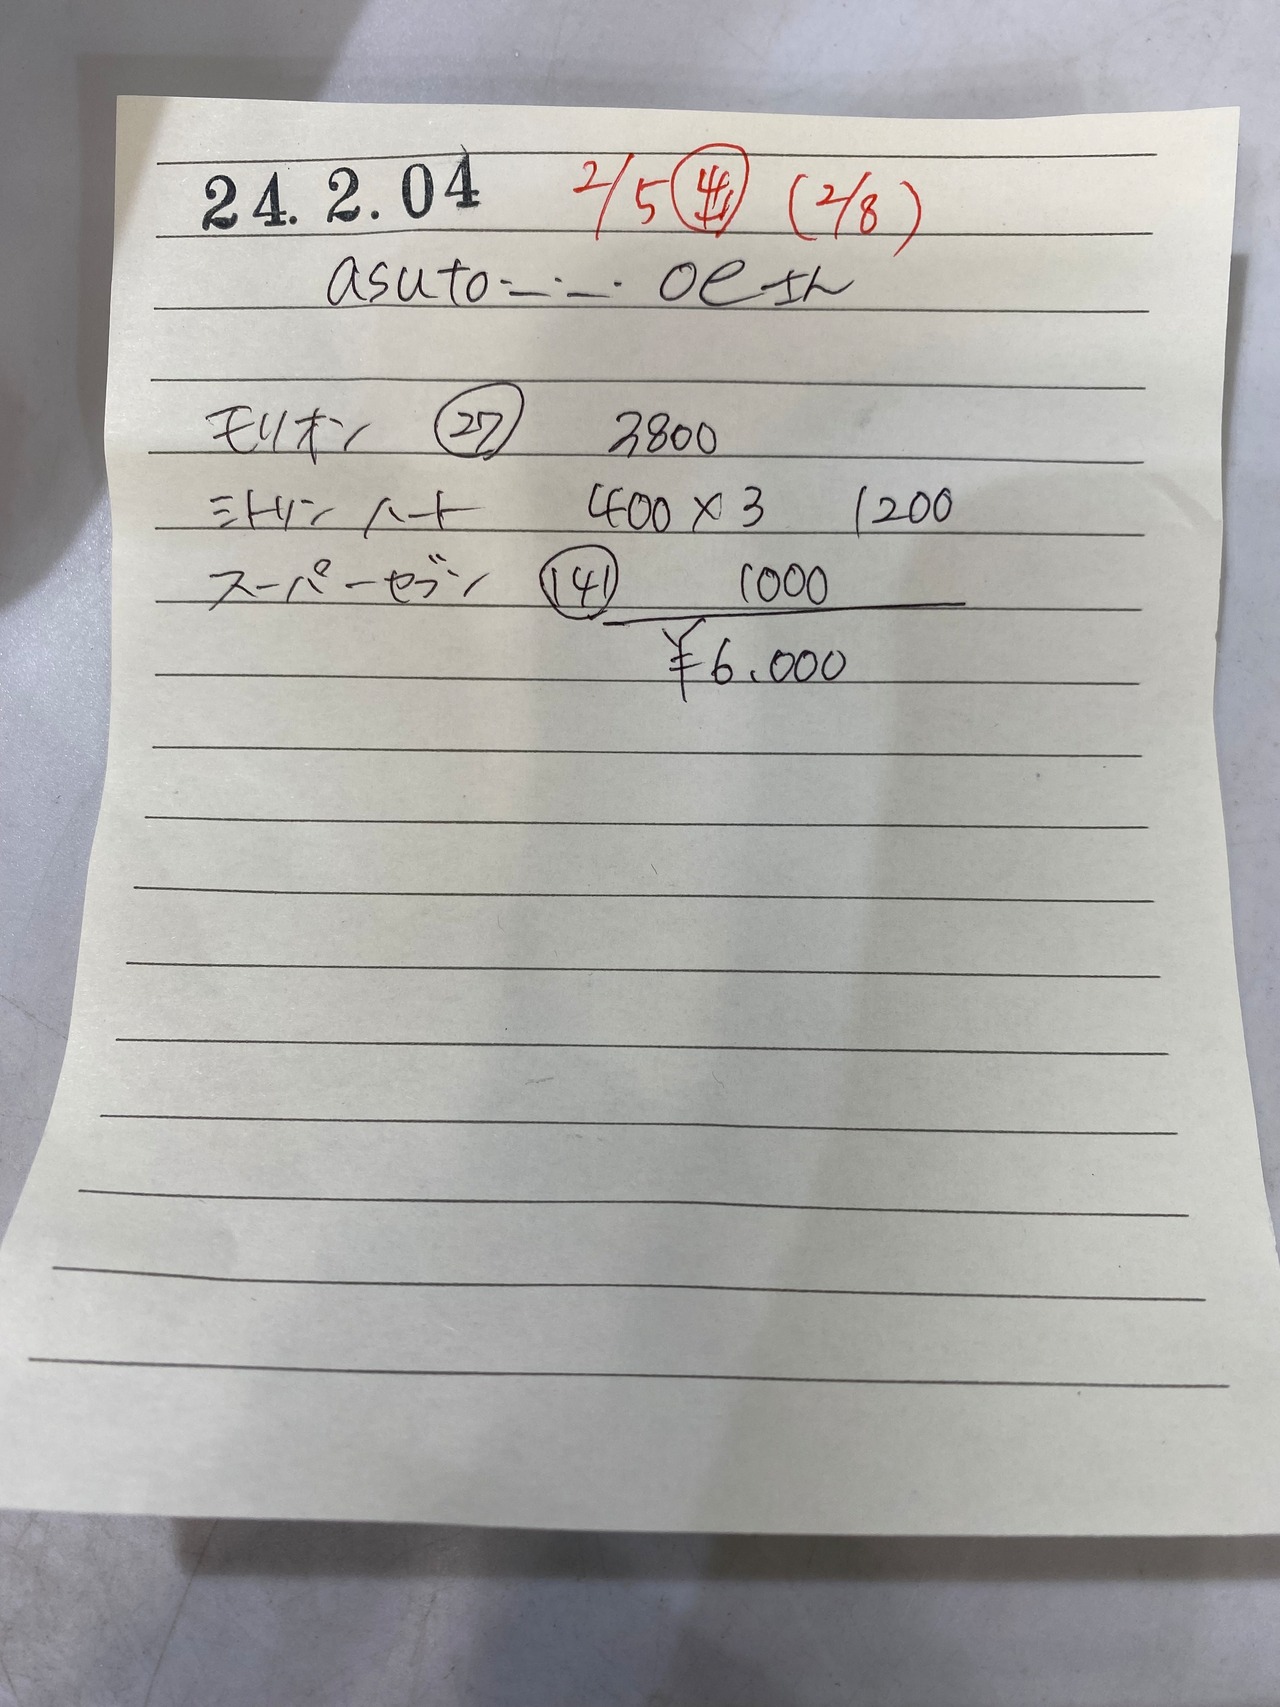 24.2.04 2/5 出 (2/8)
asuto-_-_- oe さん
モリオン 27 3800
シトリン ハート 400×3 1200
スーパーセブン 141 1000
¥6.000